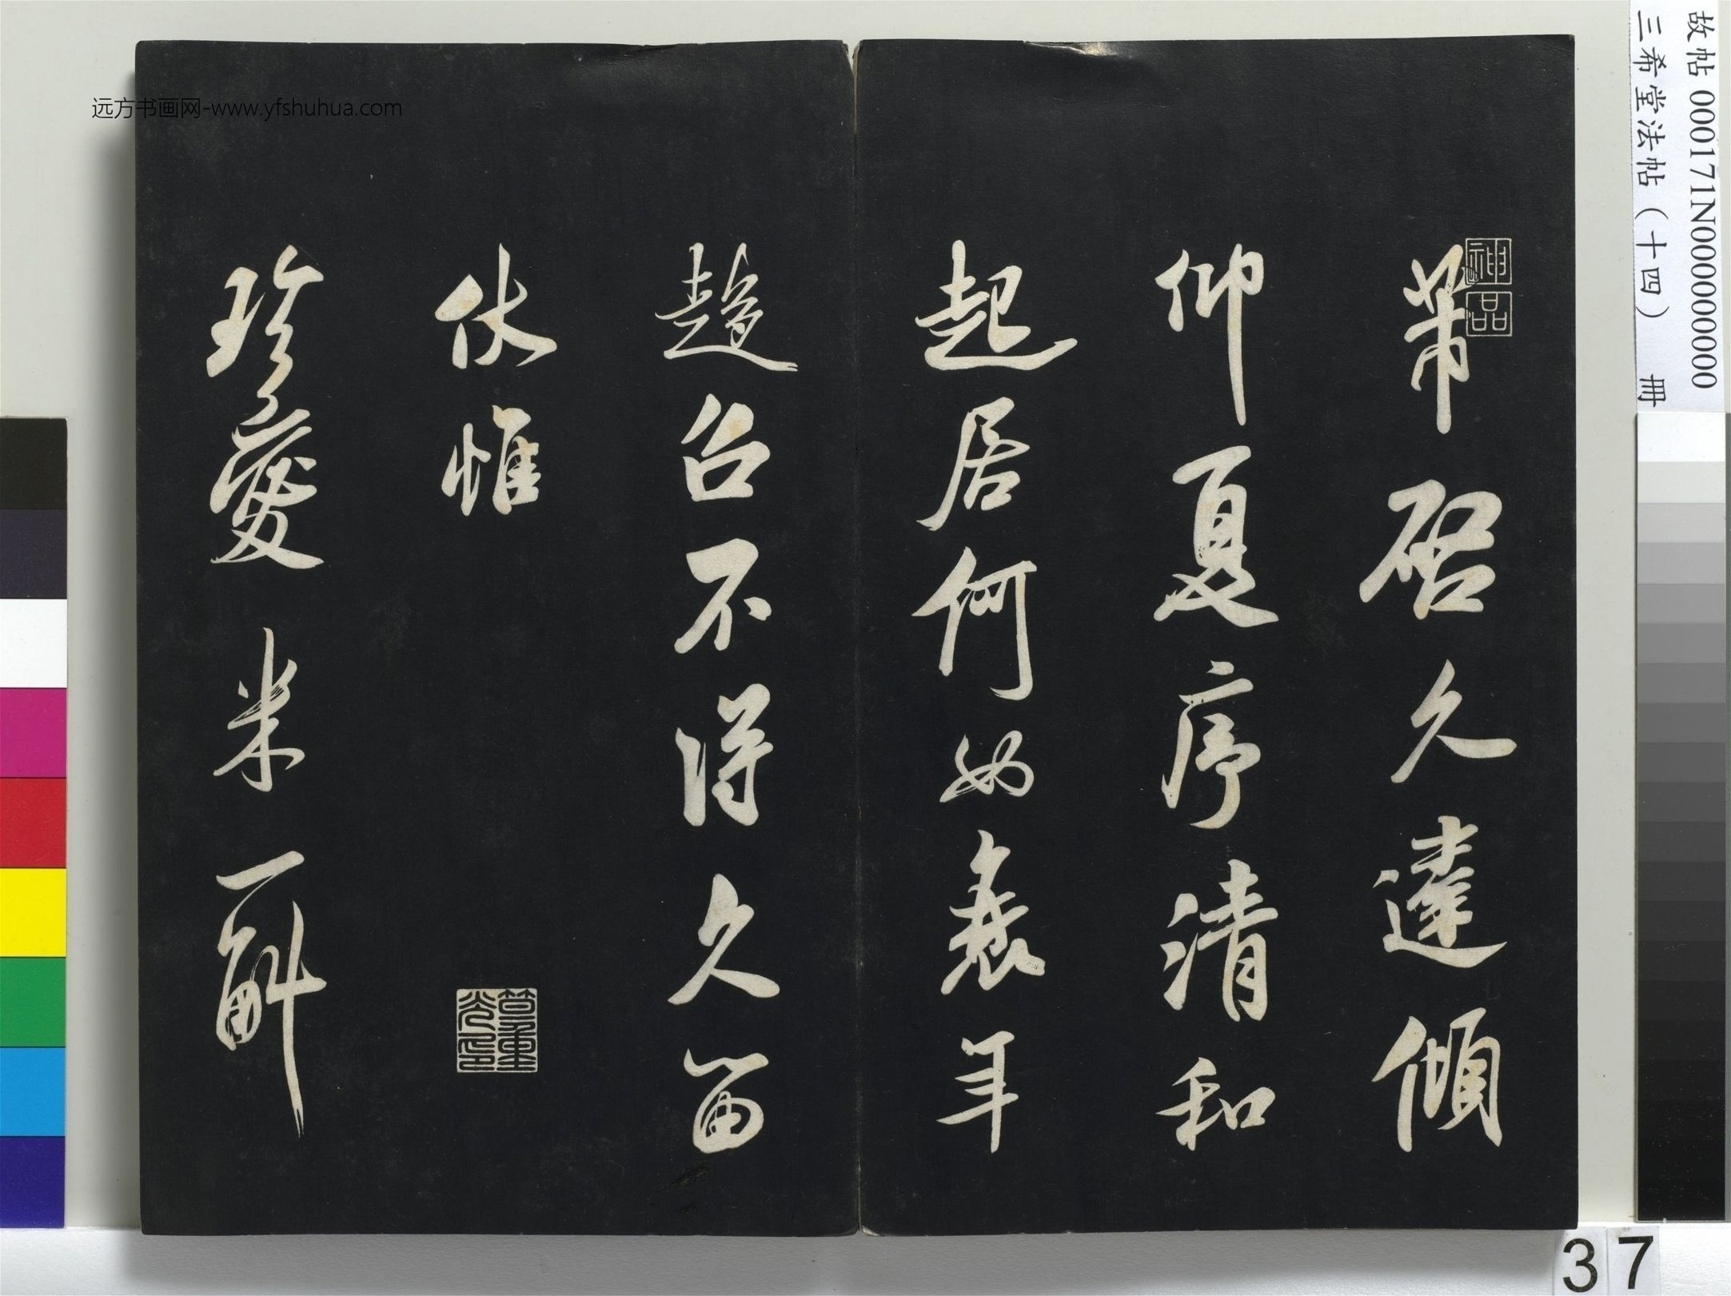 故帖 000171N000000000
三希堂法帖（十四） 冊
远方书画网-www.yfshuhua.com
神品
芾啓久違傾
仰夏序清和
起居何如衰年
趨召不得久留
伏惟
珍愛米一斛
笪重光印
37